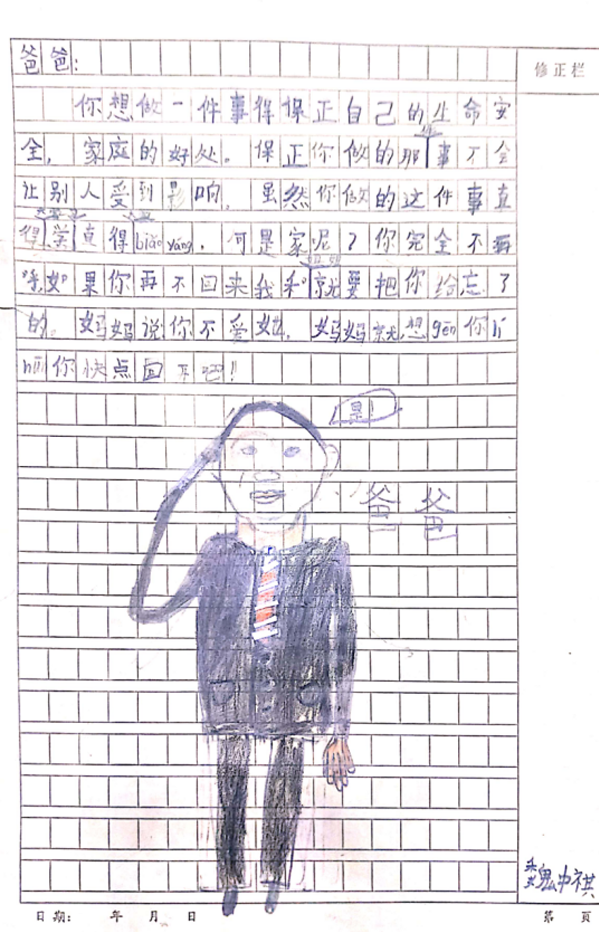 爸爸：
修正栏
你想做一件事得保正自己的生命安
全，家庭的好处。保正你做的那件事不会
让别人受到影响，虽然你做的这件事直
得学 直得biǎo yáng，可是家呢？你完全不再
果你再不回来我和 就要把你给忘了
的。妈妈说你不爱她，妈妈就想gēn你lí
hūn你快点回来吧！
是！
爸爸
日期： 年 月 日
第 页